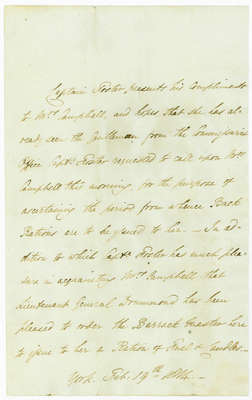 Captain Foster presents his Compliments
to Mrs. Campbell, and hopes that she has al-
ready seen the Gentleman from the Commissariat
Office Captn. Foster requested to call upon Mrs.
Campbell this morning, for the purpose of
ascertaining the period from whence Back
Rations are to be issued to her. — In ad-
dition to which Captn. Foster has much plea-
sure in acquainting Mrs. Campbell that
Lieutenant General Drummond has been
pleased to order the Barrack Master here
to issue to her a Ration of Fuel & Candles.
York. Feb. 19th 1814. —